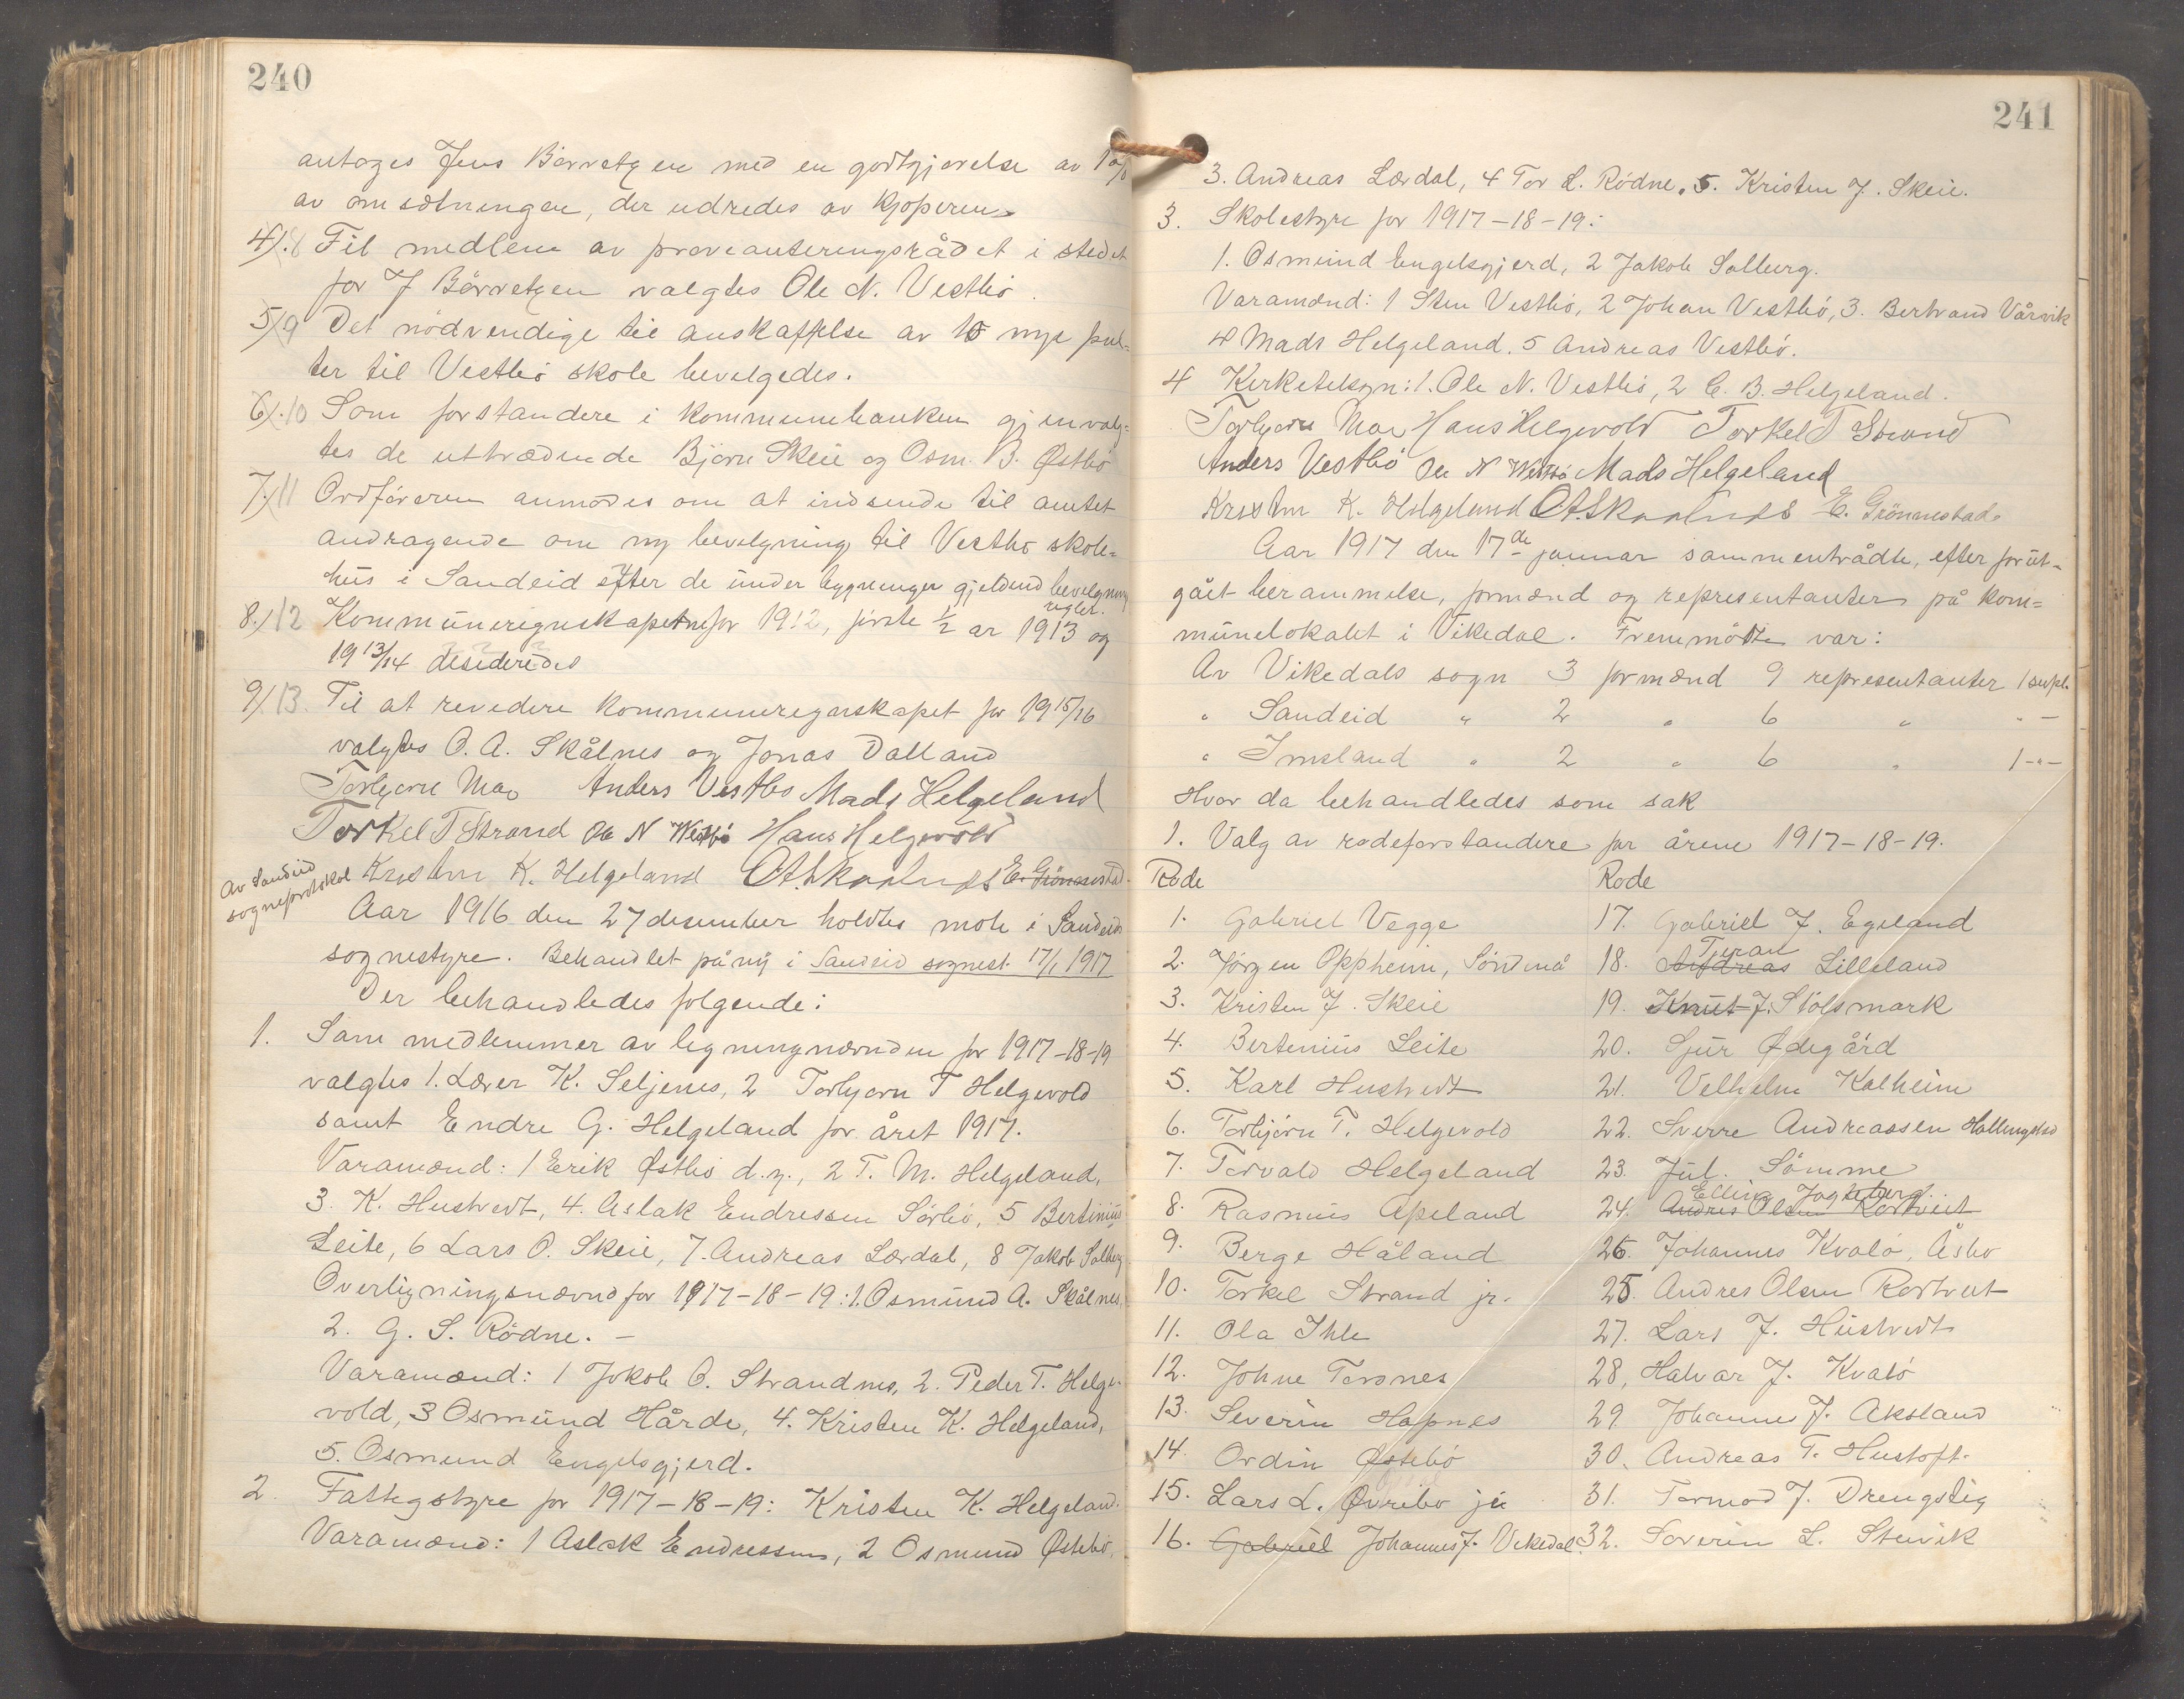 240
antages Jens Børretzen med en godtgjørelse av 1 %
av omsætningen, der udredes av kjøperen.
4). 8 Til medlem av proveanteringsrådet i stedet
for J Börretzen valgtes Ole N. Vestbö.
5) 9 Det nödvendige til anskaffelse av 10 nye pul-
ter til Vestbö skole bevilgedes.
6). 10 Som forstandere i kommunebanken gjenvalg-
tes de uttrædende Bjørn Skeie og Osm. B. Østbö
7.) 11 Ordföreren anmodes om at indsende til amtet
andragende om ny bevilgning til Vestbø skole-
hus i Sandeid efter de under bygningen gjeldend bevilgning
regler.
8.) 12 Kommuneregnskapetne for 1912, förste 1/2 ar 1913 og
19 13/14 desideredes
9). 13. Til at revedere kommuneregnskapet for 19 15/16
valgtes O. A. Skålnes og Jonas Dalland
Torbjørn Moe Anders Vestbø Mads Helgeland
Torkel T Strand Ole N Westbö Hans Helgevold
Kristen K. Helgeland O A Skaalnes E. Grönnestad.
Av Sandeid
sogneprotokol
Aar 1916 den 27 desember holdtes möte i Sandeid
sognestyre. Behandlet på ny i Sandeid sognest. 17/1 1917
Der behandledes følgende:
1. Som medlemmer av ligningnævnden for 1917-18-19
valgtes 1. Lærer K. Seljenes, 2 Torbjørn T Helgevold
samt Endre G. Helgeland for året 1917.
Varamænd: 1 Erik Østbö d.y., 2 T. M. Helgeland,
3. K. Hustvedt, 4. Aslak Endressen Sörbö, 5 Bertinius
Leite, 6 Lars O. Skeie, 7. Andreas Lærdal, 8 Jakob Solberg
Overligningsnævnd for 1917-18-19: 1. Osmund A. Skålnes,
2. G. S. Rödne. -
Varamænd: 1 Jakob O. Strandnes, 2. Peder T. Helge-
vold, 3 Osmund Hårde, 4. Kristen K. Helgeland,
5. Osmund Engelsgjerd.
2. Fattigstyre for 1917-18-19: Kristen K. Helgeland.
Varamænd: 1 Aslak Endressen, 2 Osmund Østebö,
241
3. Andreas Lærdal, 4 Tor L. Rödne, 5. Kristen J. Skeie.
3. Skolestyre for 1917-18-19:
1. Osmund Engelsgjerd, 2 Jakob Solberg.
Varamænd: 1 Sten Vestbö, 2 Johan Vestbö, 3. Bertrand Vårvik
4 Mads Helgeland. 5 Andreas Vestbö.
4 Kirketilsyn: 1. Ole N. Vestbö, 2 C. B. Helgeland.
Torbjørn Moe Hans Helgevold Torkel T Strand
Anders Vestbö Ole N Westbö Mads Helgeland
Kristen K. Helgeland O A Skaalnes E. Grönnestad.
Aar 1917 den 17de januar sammentrådte, efter forut-
gået berammelse, formænd og representanter på kom=
munelokalet i Vikedal. Fremmötte var:
Av Vikedals sogn 3 formænd 9 representanter 1 supl.
" Sandeid " 2 " 6 " " -
" Imsland " 2 " 6 " 1 - " -
Hvor da behandledes som sak
1. Valg av rodeforstandere for årene 1917-18-19.
Rode
1. Gabriel Vegge
2. Jörgen Oppheim, Söndenå
3. Kristen J. Skeie
4. Bertenius Leite
5. Karl Hustvedt
6. Torbjörn T. Helgevold
7. Torvald Helgeland
8. Rasmus Apeland
9. Berge Håland
10. Torkel Strand jr.
11. Ola Ihle
12. Johne Torsnes
13. Severin Hapnes
14. Ordin Østebö
15. Lars L. Øvrebø ju
16. Gabriel Johannes J. Vikedal
Rode
17. Gabriel J. Egeland
18. Andreas Lilleland
19. Knut J. Stölsmark
20. Sjur Ødegård
21. Velhelm Kalheim
22. Sverre Andreassen Hallingstad
23. Jul. Sömme
24. Andres Olsen Rortveit
26. Johannes Kvalö, Åsbø
25. Andres Olsen Rortveit
27. Lars J. Hustvedt
28, Halvar J. Kvalö
29 Johannes J. Aksland
30. Andreas T. Hustoft.
31. Tormod J. Drengstig
32. Soverin L. Stuvik